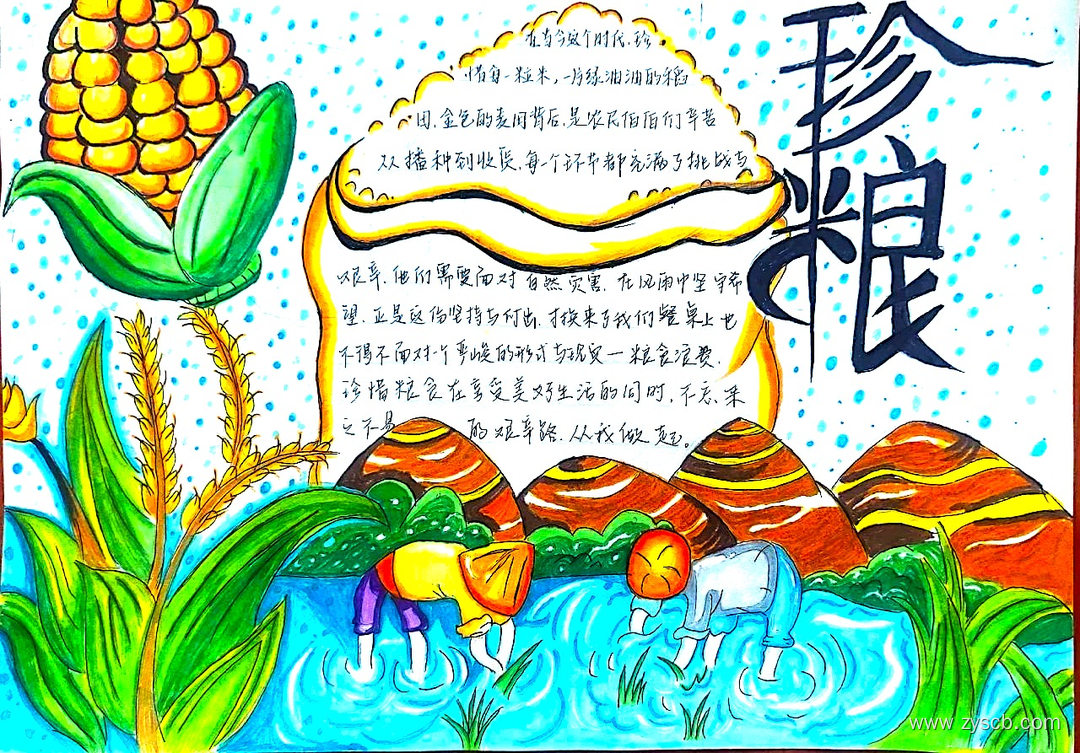 珍粮
在当今这个时代，珍
惜每一粒米，一片绿油油的稻
田，金色的麦间背后，是农民伯伯们辛苦
从播种到收获，每一个环节都充满了挑战与
艰辛，他们需要面对自然灾害，在风雨中坚守希
望，正是这份坚持与付出，才换来了我们餐桌上也
不得不面对一个严峻的形式与现实一粮食浪费，
珍惜粮食在享受美好生活的同时，不忘，来
之不易的艰辛路，从我做起。
www.zyscb.com